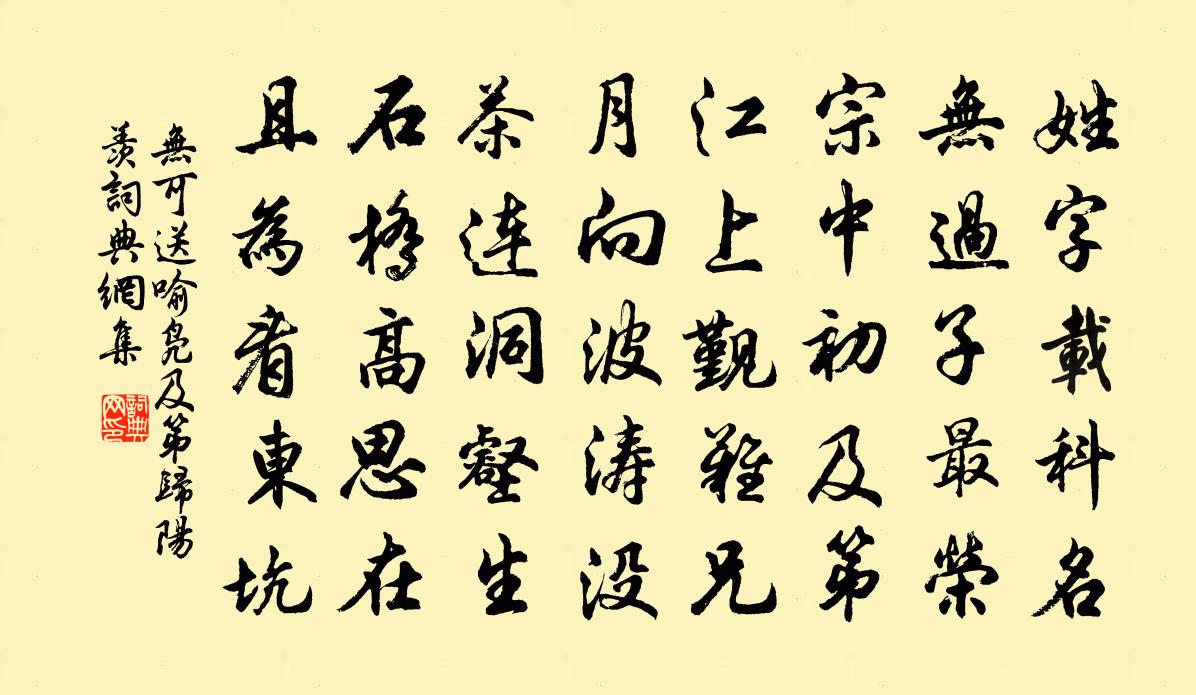 姓字載科名
無過子最榮
宗中初及第
江上覲難兄
月向波濤没
茶連洞壑生
石橋高思在
且為看東坑
無可送喻凫及第歸陽
羨詞典網集
詞典
网印